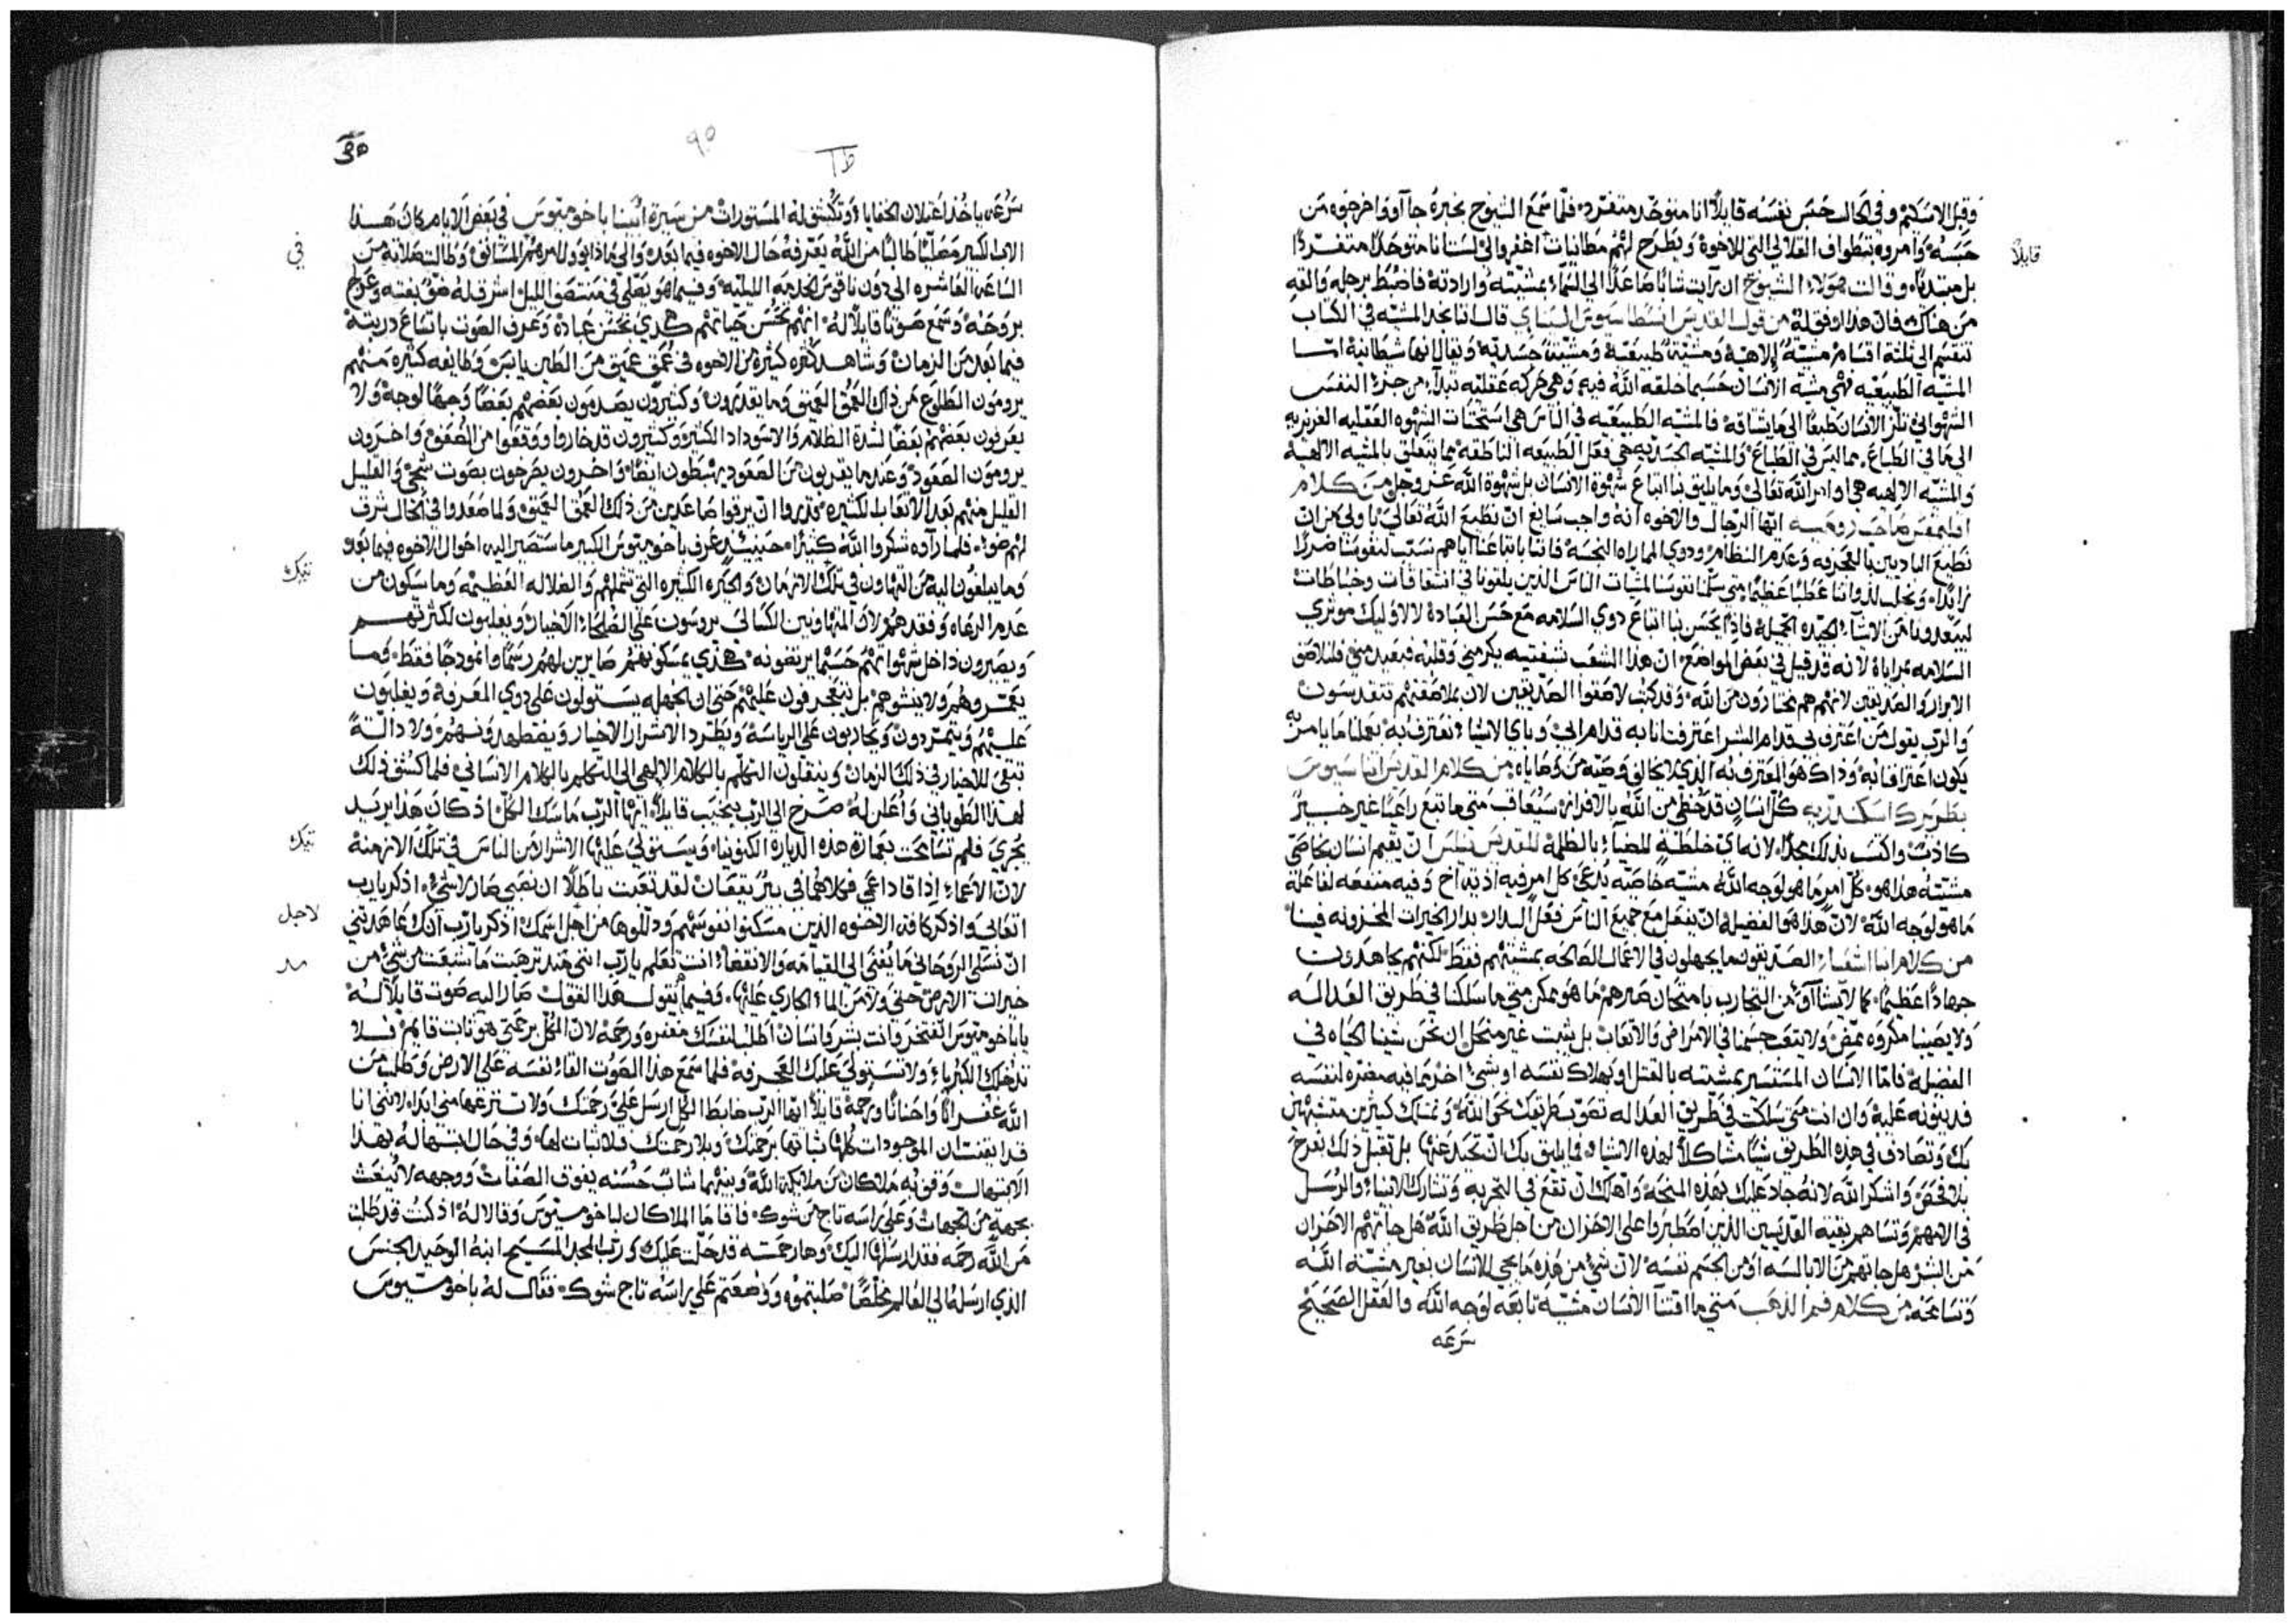 وقبل الاسكيم وفي الحال حبس نفسه قايلاً انا متوحد منفرد فلما سمع الشيوخ بخبره جآ آووا خرجوه من
حبسه وامروه بتطواف القلالي التي للاخوة ويطرح لهم مطانيات اغفروا لي لست انا متوحداً منفرداً
قايلاً
بل مبتدياً وقالت هولاء الشيوخ ان رآيت شاباً صاعداً الى السماء بمشيته وارادته فاضبط برجله والقه
من هناك فان هذا اوفق له من قول القديس انسطاسيوس السينايي قال اننا نجد المشيه في الكتاب
تنقسم الى ثلثة اقسام مشية إلاهية ومشيّة طبيعية ومشيّة جسديّه ويقال انها شيطانية امّا
المشيّه الطبيعيه فهي مشية الانسان حسبما خلقه الله فيه وهي حركه عقليه تبدآ من جزء النفس
الشهواني تلز الانسان طبعاً الى ما يشاقه فالمشيّه الطبيعيّه في الناس هي استحثات الشهوه العقليه الغريزيه
الى ما في الطباع مما ليس في الطباع والمشيّه الجسديه هي فعل الطبيعه الناطقه مما يتعلق بالمشيه الالهية
والمشيّه الالهيه هي اوامر الله تعالى وما يليق بنا اتباع شهوة الانسان بل شهوة الله عز وجل من كلام
اقليمقس صاحب رومية ايها الرجال والاخوه انه واجب سايغ ان نطيع الله تعالى يا ولي من ان
نطيع البادين بالعجرفه وعدم النظام وذوي المماراه النجسة فاننا باتباعنا اياهم نسبب لنفوسنا ضرراً
زايداً ونجلب لذواتنا عطباً عظيماً متى سلمنا نفوسنا لمشيات الناس الذين يلقونا في انتفاقات وخباطات
ليبعدونا من الاشيآء الجيده الجميلة فاذاً يحسن بنا اتباع ذوي السلامه مع حسن العبادة لا لاوليك موثري
السلامه بمراياة لانه قد قيل في بعض المواضع ان هذا الشعب بشفتيه يكرمني وقلبه فبعيد مني فلنلاصق
الابرار والصديقين لانهم هم مختارون من الله وقد كتب لاصقوا الصديقين لان بملاصقتهم تتقدسون
والرب يقول من اعترف لي قدام البشر اعترفت انا به قدام ابي وباي الاشياء نعترف به بعملنا ما يامر به
يكون اعترافنا به وذاك هو المعترف به الذي لا يخالف وصيّه من وصاياه من كلام القديس اثناسيوس
بطريرك اسكندريه كل انسان قد حظي من الله بالافراز سيعاقب متى ما تبع راعياً غير خبيرً
كاذب واكتسب بذلك مجداً لانه اي خلطة للضياء بالظلمة للقديس نيلس ان تقيم انسان بخاصيّ
مشيته هذا هو كل امر ما هو لوجه الله مشيّه خاصيّه يدعى كل امر فيه اذيّة اخ وفيه منفعه لفاعله
ما هو لوجه الله لان هذا هو الفضيلة ان نفعل مع جميع الناس فعل الدار بدار الخيرات المخزونه فينا
من كلام انبا اشعياء الصديقون ما يجهلون في الاعمال الصالحه بمشيتهم فقط لكنهم يجاهدون
جهاداً عظيماً كما لا يشآآوا من التجارب بامتحان صبرهم ما هو ممكن متى ما سلكنا في طريق العداله
ولا يصيبنا مكروه ممض ولا يتعب جسمنا في الامراض والاتعاب بل يثبت غير منحل ان نحن شينا الحياه في
الفضيلة فامّا الانسان المستسير بمشيته بالقتل او بهلاك نفسه او شيء اخر ما فيه مضره لنفسه
فدينونه عليه وان انت متى سلكت في طريق العداله تصوب طريقك نحو الله وتمسك كثيرين متشبهين
بك وتصادف في هذه الطريق شياً مشاكلاً لهذه الاشياء فما يليق بك ان تحيد عنها بل تقبل ذلك بفرح
بلا فحص واشكر الله لانه جاد عليك بهذه المنحة واهلك ان تقع في التجربه وتشارك الانبياء والرسل
في الامهم وتساهم بقية القديسين الذين اصطبروا على الاحزان من اجل طريق الله هل جاتهم الاحزان
من البشر هل جاتهم من الابالسه او من الجسم نفسه لان شيء من هذه ما يجي للانسان بغير مشيّة الله
وتسامحه من كلام فم الذهب متى ما اقتنآ الانسان مشيّه تابعه لوجه الله والعقل الصحيح
سرعه

٩٥
سرعه ياخذ اعتلان الخفايا وتكشف له المستورات من سيرة ابينا باخوميوس في بعض الايام كان هذا
الاب الكبير مصليّاً طالباً من الله يعرفه حال الاخوه فيما بعده والى ماذا يوول امرهم المشتانق وطالت صلاته من
في
الساعه العاشره الى دون ناقوس الخدمه الليلية وفيما هو يصلي في منتصف الليل اشرق له ضوّ بغته وعرج
بروحه وسمع صوتاً قايلاً له انهم تحسن حياتهم هكذي بحسن عبادة وعرف الصوت باتساع ذريته
فيما بعد من الزمان وشاهد كثره كثيره من الاخوه في عمق عميق من الطين يابس وطايفه كثيره منهم
يرومون الطلوع من ذلك العمق العميق وما يقدرون وكثيرون يصدمون بعضهم بعضاً وجهاً لوجه ولا
يعرفون بعضهم بعضاً لشدة الظلام والاسوداد الكثير وكثيرون قد خاروا ووقعوا من الضعف واخرون
يرومون الصعود وعندما يقربون من الصعود يهبطون ايضاً واخرون يصرخون بصوت شجي والقليل
القليل منهم بعد الاتعاب الكثيره قدروا ان يرقوا صاعدين من ذلك العمق العميق ولما صعدوا في الحال شرق
لهم ضوء فلما رآوه شكروا الله كثيراً حينيذ عرف باخوميوس الكبير ما ستصير اليه احوال الاخوه فيما بعد
وما يبلغون اليه من التهاون في تلك الازمان والحيره الكثيره التي تشملهم والضلاله العظيمه وما سيكون من
تيك
عدم الرعاه وفقدهم لان المتهاونين الكسالى يروسون على الصلحاء الاخيار ويغلبون لكثرتهم
ويصيرون داخل شهواتهم حسبما يرتضونه هكذي بمسكونهم صايرين لهم رسماً وانموذجاً فقط وما
يعمروهم ولا ينشوهم بل يتعجرفون عليهم حتى ان الجهله يستولون على ذوي المعرفة ويغلبون
عليهم ويتمردون ويحاربون على الرياسه ويطرد الاشرار الاخيار ويضطهدونهم ولا دالّة
تبقى للاخيار في ذلك الزمان وينقلون التكلم بالكلام الالهي الى التكلم بالكلام الانساني فلما كشف ذلك
لهذا الطوباني واعلن له صرخ الى الرب بنحيب قايلاً ايها الرب ماسك الكل اذ كان هذا يريد
يجري فلم تسامحت بعمارة هذه الديارة الكنوبيا ويستولي عليها الاشرار من الناس في تلك الازمنة
تيك
لان الاعماء اذا قاد اعمى فكلاهما في بئر يقعان لقد تعبت باطلاً ان نصبي صار لا شيء اذكر يا رب
اتعابي واذكر كافة الاخوه الذين مسكنوا نفوسهم وذللوها من اجل اسمك اذكر يا رب انك عاهدتني
لاجل
ان نسلي الروحاني ما يفنى الى القيامه والانقضاء انت تعلم يا رب انني منذ ترهبت ما شبعت من شيء من
مذ
خيرات الارض حتى ولا من الماء الجاري عليها وفيما يقول هذا القول صار اليه صوت قايلاً له
يا باخوميوس لا تفتخر وانت بشر وانسان اطلب لنفسك مغفره ورحمة لان الكل برحمتي هو ثابت قايم فلا
تدخلك الكبرياء ولا تستولي عليك العجرفة فلما سمع هذا الصوت القاء نفسه على الارض وطلب من
الله غفراناً واحناناً ورحمة قايلاً ايها الرب ضابط الكل ارسل علي رحمتك ولا تنزعها مني ابداً لانني انا
قد ايقنت ان الموجودات كلها ثباتها برحمتك وبلا رحمتك فلا ثبات لها وفي حال ابتهاله بهذا
الابتهال وقف به ملاكان من ملايكة الله وبينهما شابّ حسنه يفوق الصفات ووجهه لا ينعت
بجهة من الجهات وعلى راسه تاج من شوك فاقاما الملاكان لباخوميوس وقالا له اذ كنت قد طلبت
من الله رحمه فقد ارسلها اليك وها رحمته قد حلّت عليك وربّ المجد المسيح ابنه الوحيد الجنس
الذي ارسله الى العالم مخلّصاً صلبتموه ووضعتم على راسه تاج شوك فقال له باخوميوس